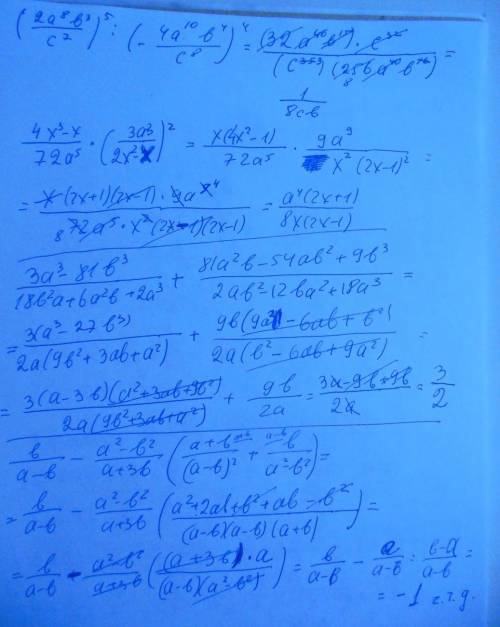 (2a⁸b³/c⁷)⁵ : (-4a¹⁰b⁴/c⁸)⁴ = (32a⁴⁰b¹⁵)·c³²/(c³⁵)(256a⁴⁰b¹⁶) =
8
1/8cb
4x³-x/72a⁵ · (3a³/2x²-x)² = x(4x²-1)/72a⁵ · 9a⁹/x²(2x-1)² =
= x(2x+1)(2x-1)·9a⁴/8 72a⁵·x²(2x-1)(2x-1) = a⁴(2x+1)/8x(2x-1)
3a³-81b³/18b²a+6a²b+2a³ + 81a²b-54ab²+9b³/2ab²-12ba²+18a³ =
= 3(a³-27b³)/2a(9b²+3ab+a²) + 9b(9a²-6ab+b²)/2a(b²-6ab+9a²) =
= 3(a-3b)(a²+3ab+9b²)/2a(9b²+3ab+a²) + 9b/2a = 3a-9b+9b/2a = 3/2
b/a-b - a²-b²/a+3b (a+b/(a-b)² + b/a²-b²) =
= b/a-b - a²-b²/a+3b (a²+2ab+b²+ab-b²/(a-b)(a-b)(a+b)) =
= b/a-b - a²-b²/a+3b ((a+3b)·a/(a-b)(a²-b²)) = b/a-b - a/a-b = b-a/a-b =
= -1 ч.т.д.